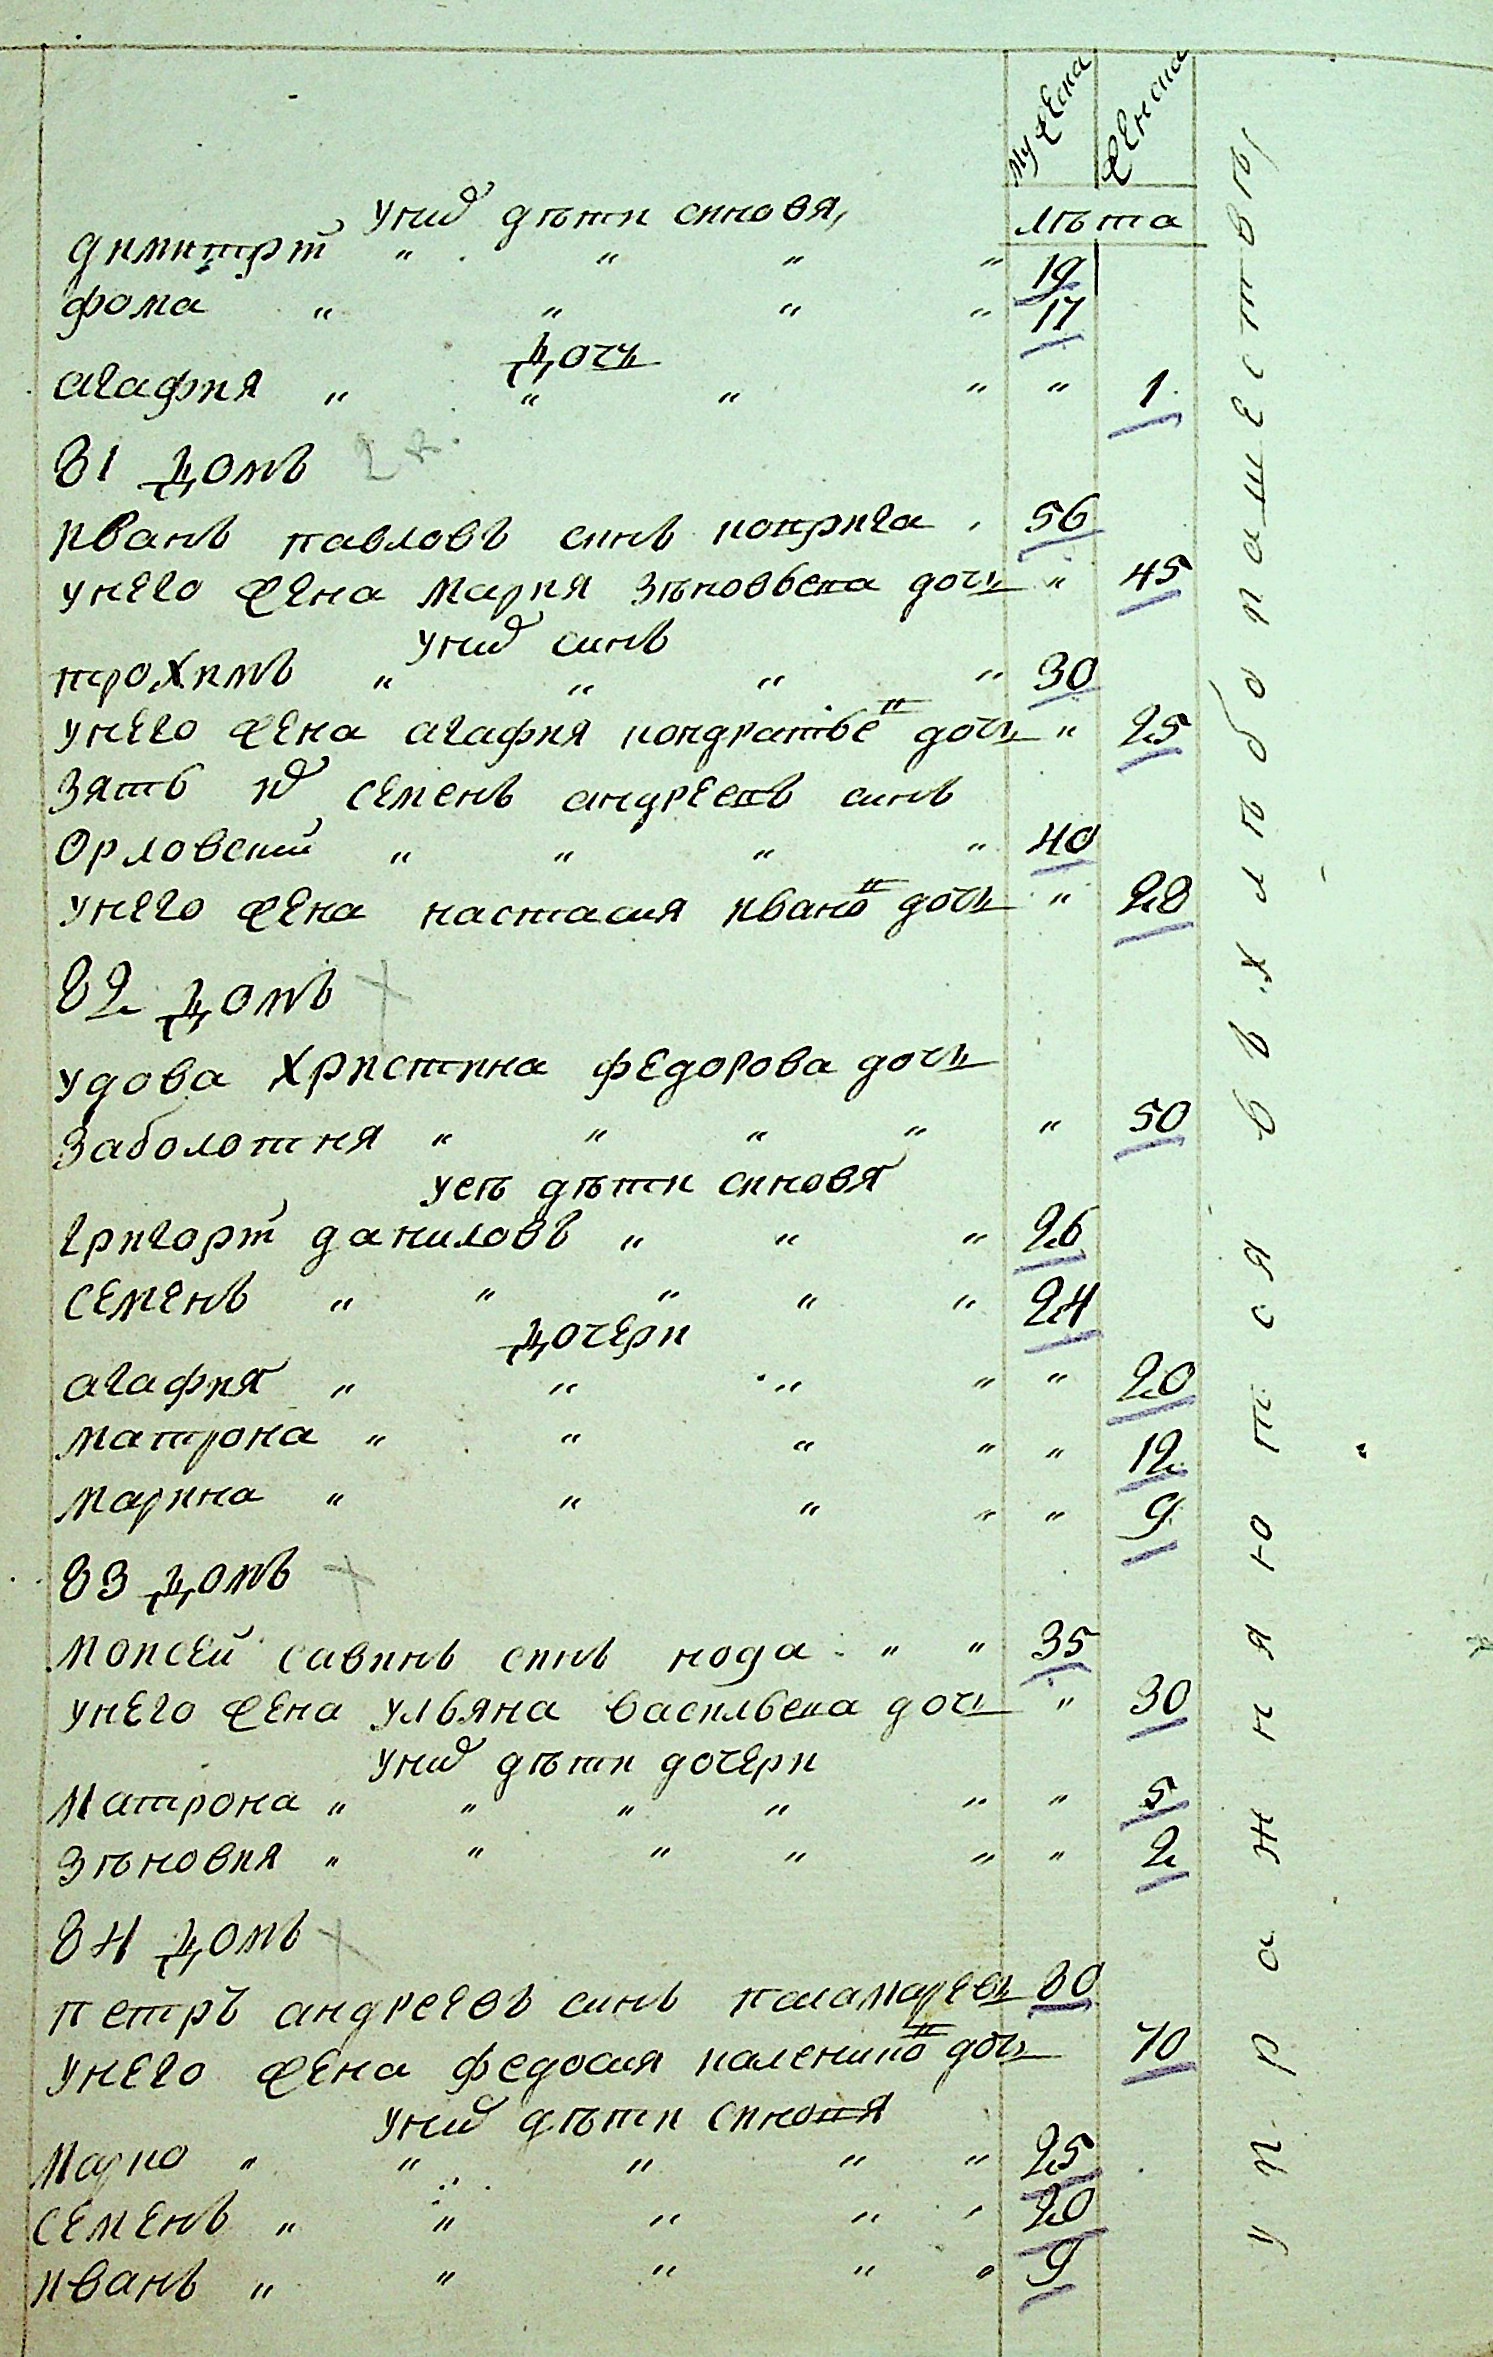 мужеска женска
лѣта
У них дѣти синовя,
Димитрій " " " " 19
Фома " " " " 17
Дочь
Агафия " " " " " 1
81 Домъ
Иванъ Павловъ синъ Коприга 56
У него жена Мария Зѣновьева дочь " 45
У них синъ
Трохимъ " " " " 30
У него жена Агафия Кондратьев дочь " 25
Зять их Семенъ Андреевъ синъ
Орловский " " " " 40
У него жена Настасия Иванов дочь " 28
82 Домъ
Удова Христина Федорова дочь
Заболотня " " " " " 50
У сей дѣти синовя
Григорій Даниловъ " " " 26
Семенъ " " " " " 24
Дочери
Агафия " " " " " 20
Матрона " " " " " 12
Марина " " " " " 9
83 Домъ
Моисей Савинъ синъ Кода " " 35
У него жена Ульяна Васильева дочь " 30
У них дѣти дочери
Матрона " " " " " " 5
Зѣновия " " " " " " 2
84 Домъ
Петръ Андреевъ синъ Паламаревъ 80
У него жена Федосия Каленико дочь 70
У них дѣти синовя
Марко " " " " " 25
Семенъ " " " " " 20
Иванъ " " " " " 9
упражняются в хлѣбопашествѣ